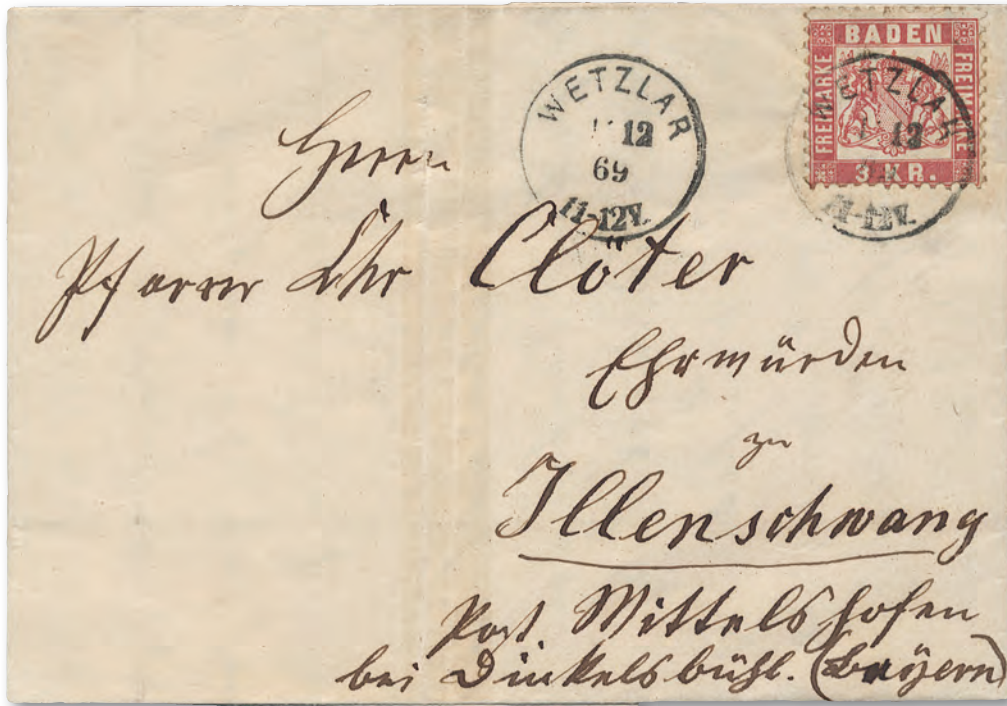 BADEN
FREIMARKE
FREIMARKE
3 KR.
WETZLAR
12
69
11-12V.
WETZLAR
12
11-12V.
Herrn
Pfarrer Clöter
Ehrwürden
zu
Illenschwang
Post. Wittelshofen
bei Dinkelsbühl. (Bayern)